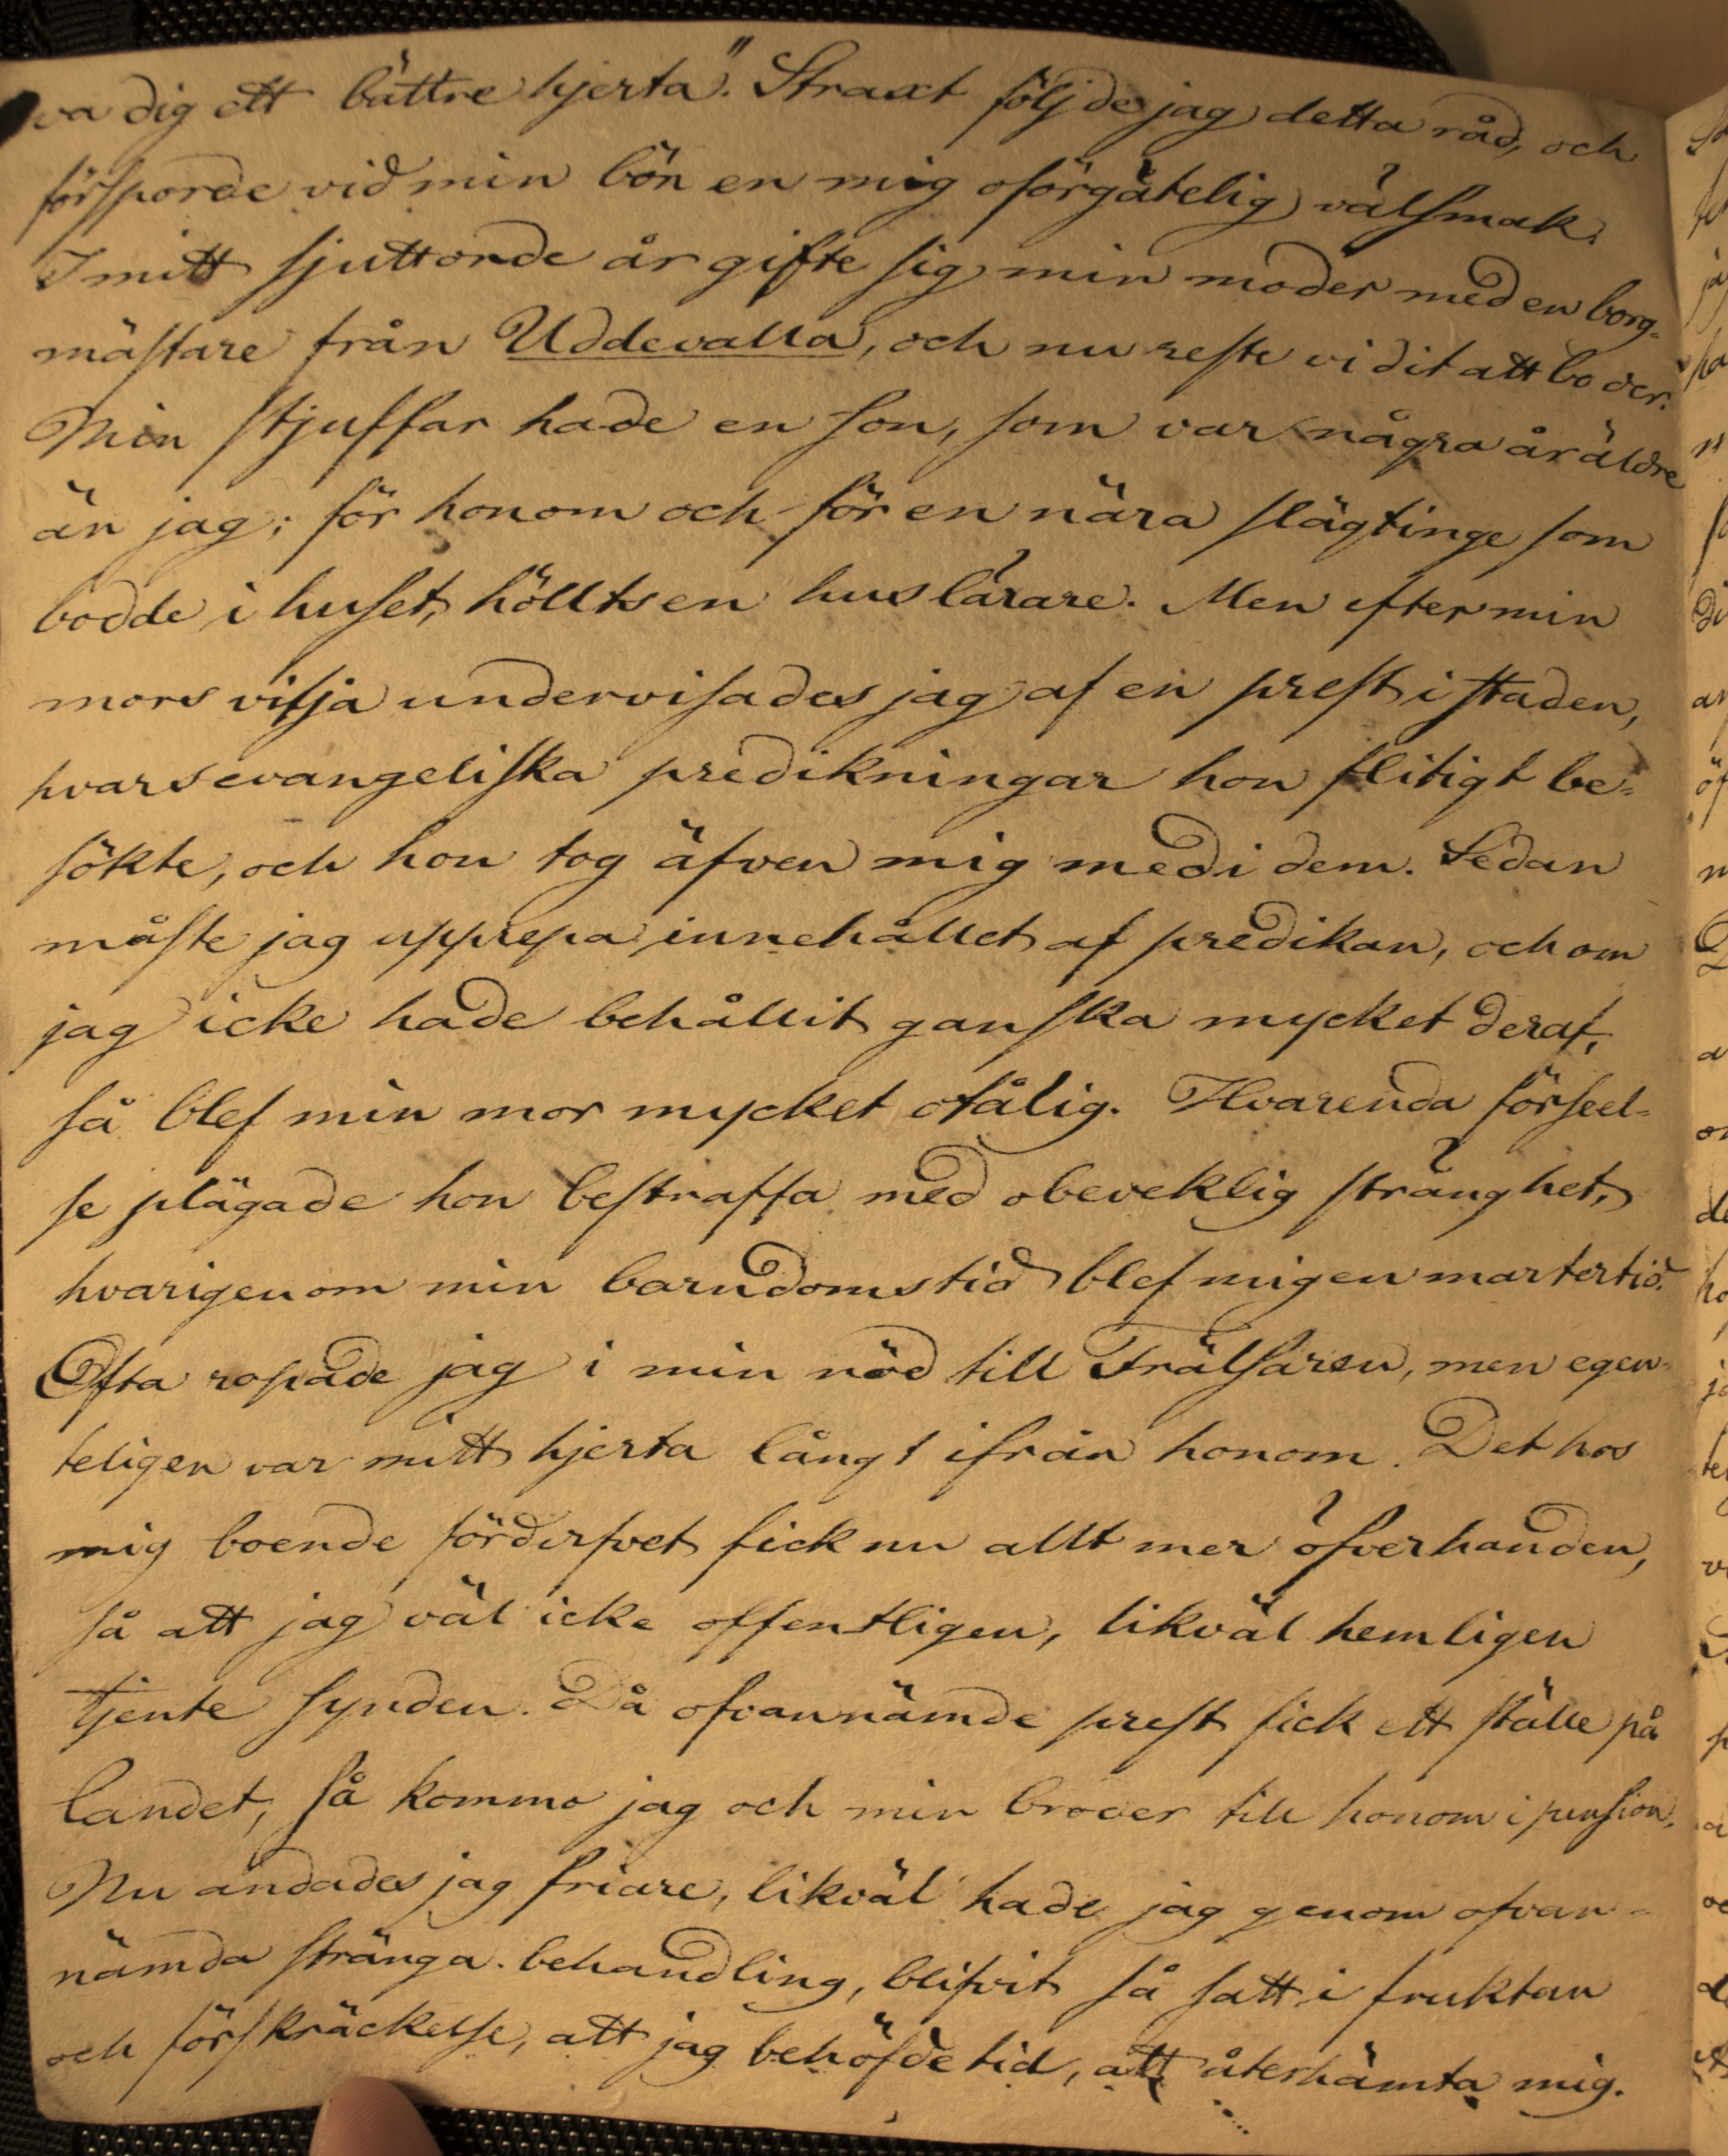 va dig ett bättre hjerta". Straxt följde jag detta råd, och
försporde vid min bön en mig oförgätelig välsmak.
I mitt sjuttonde år gifte sig min moder med en borg-
mästare från Uddevalla, och nu reste vi dit att bo der.
Min stjuffar hade en son, som var några år äldre
än jag; för honom och för en nära slägtinge som
bodde i huset, hölltsen huslärare. Men efter min
mors vilja undervisades jag af en prest i staden,
hvars evangeliska predikningar hon flitigt be-
sökte, och hon tog äfven mig med i dem. Sedan
måste jag upprepa innehållet af predikan, och om
jag icke hade behållit ganska mycket deraf,
så blef min mor mycket otålig. Hvarenda förseel-
se plägade hon bestraffa med obeveklig stränghet,
hvarigenom min barndomstid blef mig en martertid.
Ofta ropade jag i min nöd till Frälsaren, men egen-
teligen var mitt hjerta långt ifrån honom. Det hos
mig boende förderfvet fick nu allt mer öfverhanden,
så att jag väl icke offentligen, likväl hemligen
tjente synden. Då ofvannämde prest fick ett ställe på
landet, så kommo jag och min broder till honom i pension.
Nu andades jag friare, likväl hade jag genom ofvan-
nämda stränga behandling, blifvit så satt i fruktan
och förskräckelse, att jag behöfde tid, att återhämta mig.